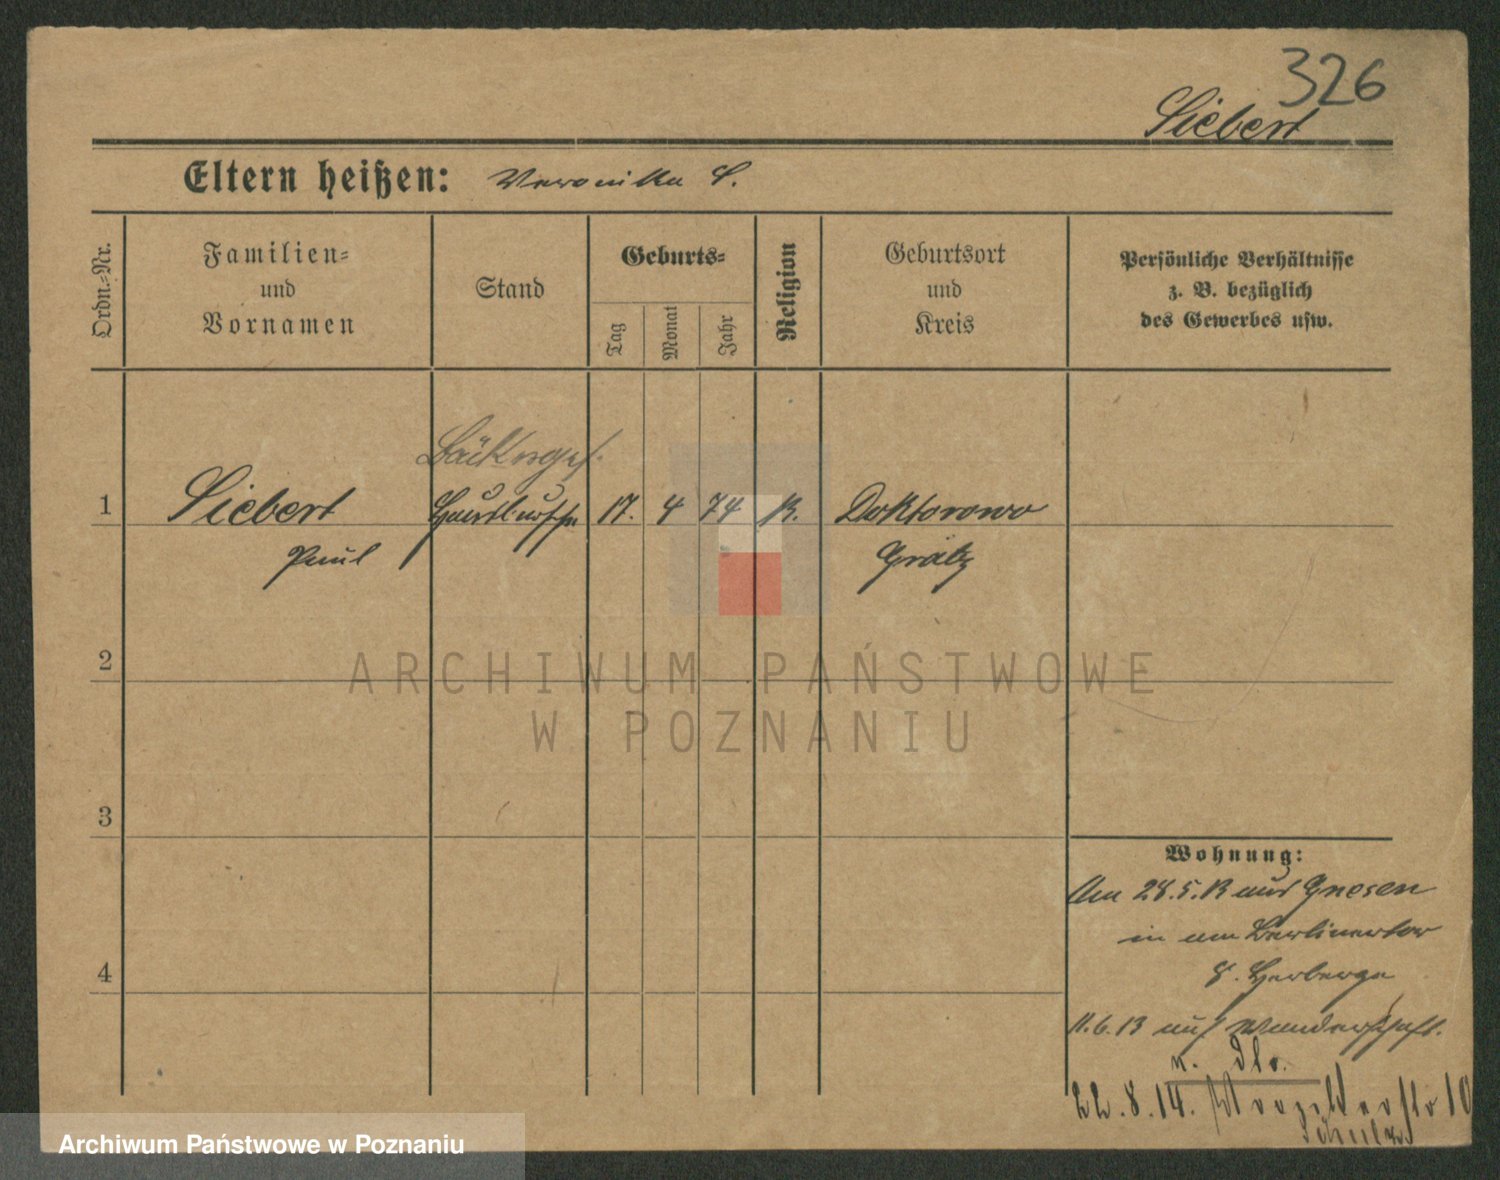 326
Siebert
Eltern heißen: Veronika S.
Ordn.-Nr.
Familien-
und
Vornamen
Stand
Geburts-
Tag
Monat
Jahr
Religion
Geburtsort
und
Kreis
Persönliche Verhältnisse
z. B. bezüglich
des Gewerbes usw.
Bäckerges.
1 Siebert Hausbursche 17. 4 74 K. Doktorowo
Paul Grätz
2
ARCHIWUM PAŃSTWOWE
W POZNANIU
3
Wohnung:
Am 28.5.13 aus Gnesen
in am Berlinertor
8. Herberge
4
11.6.13 auf Wanderschaft.
22.8.14. 10
Schulz
Archiwum Państwowe w Poznaniu